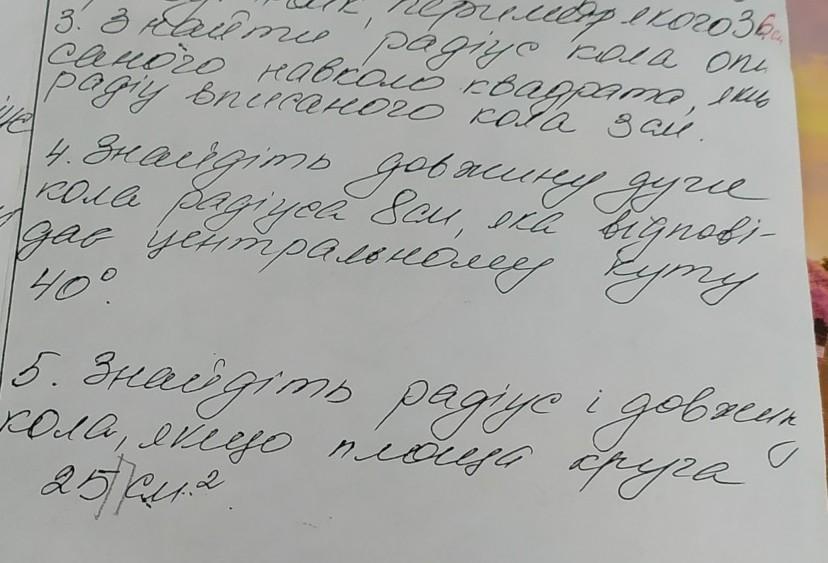 периметр якого 36 см
3. Знайти радіус кола опи
саного навколо квадрата, якщо
радіу вписаного кола 3 см.
4. Знайдіть довжину дуги
кола радіуса 8 см, яка відпові-
дає центральному куту
40°.
5. Знайдіть радіус і довжину
кола, якщо площа круга
25π см².